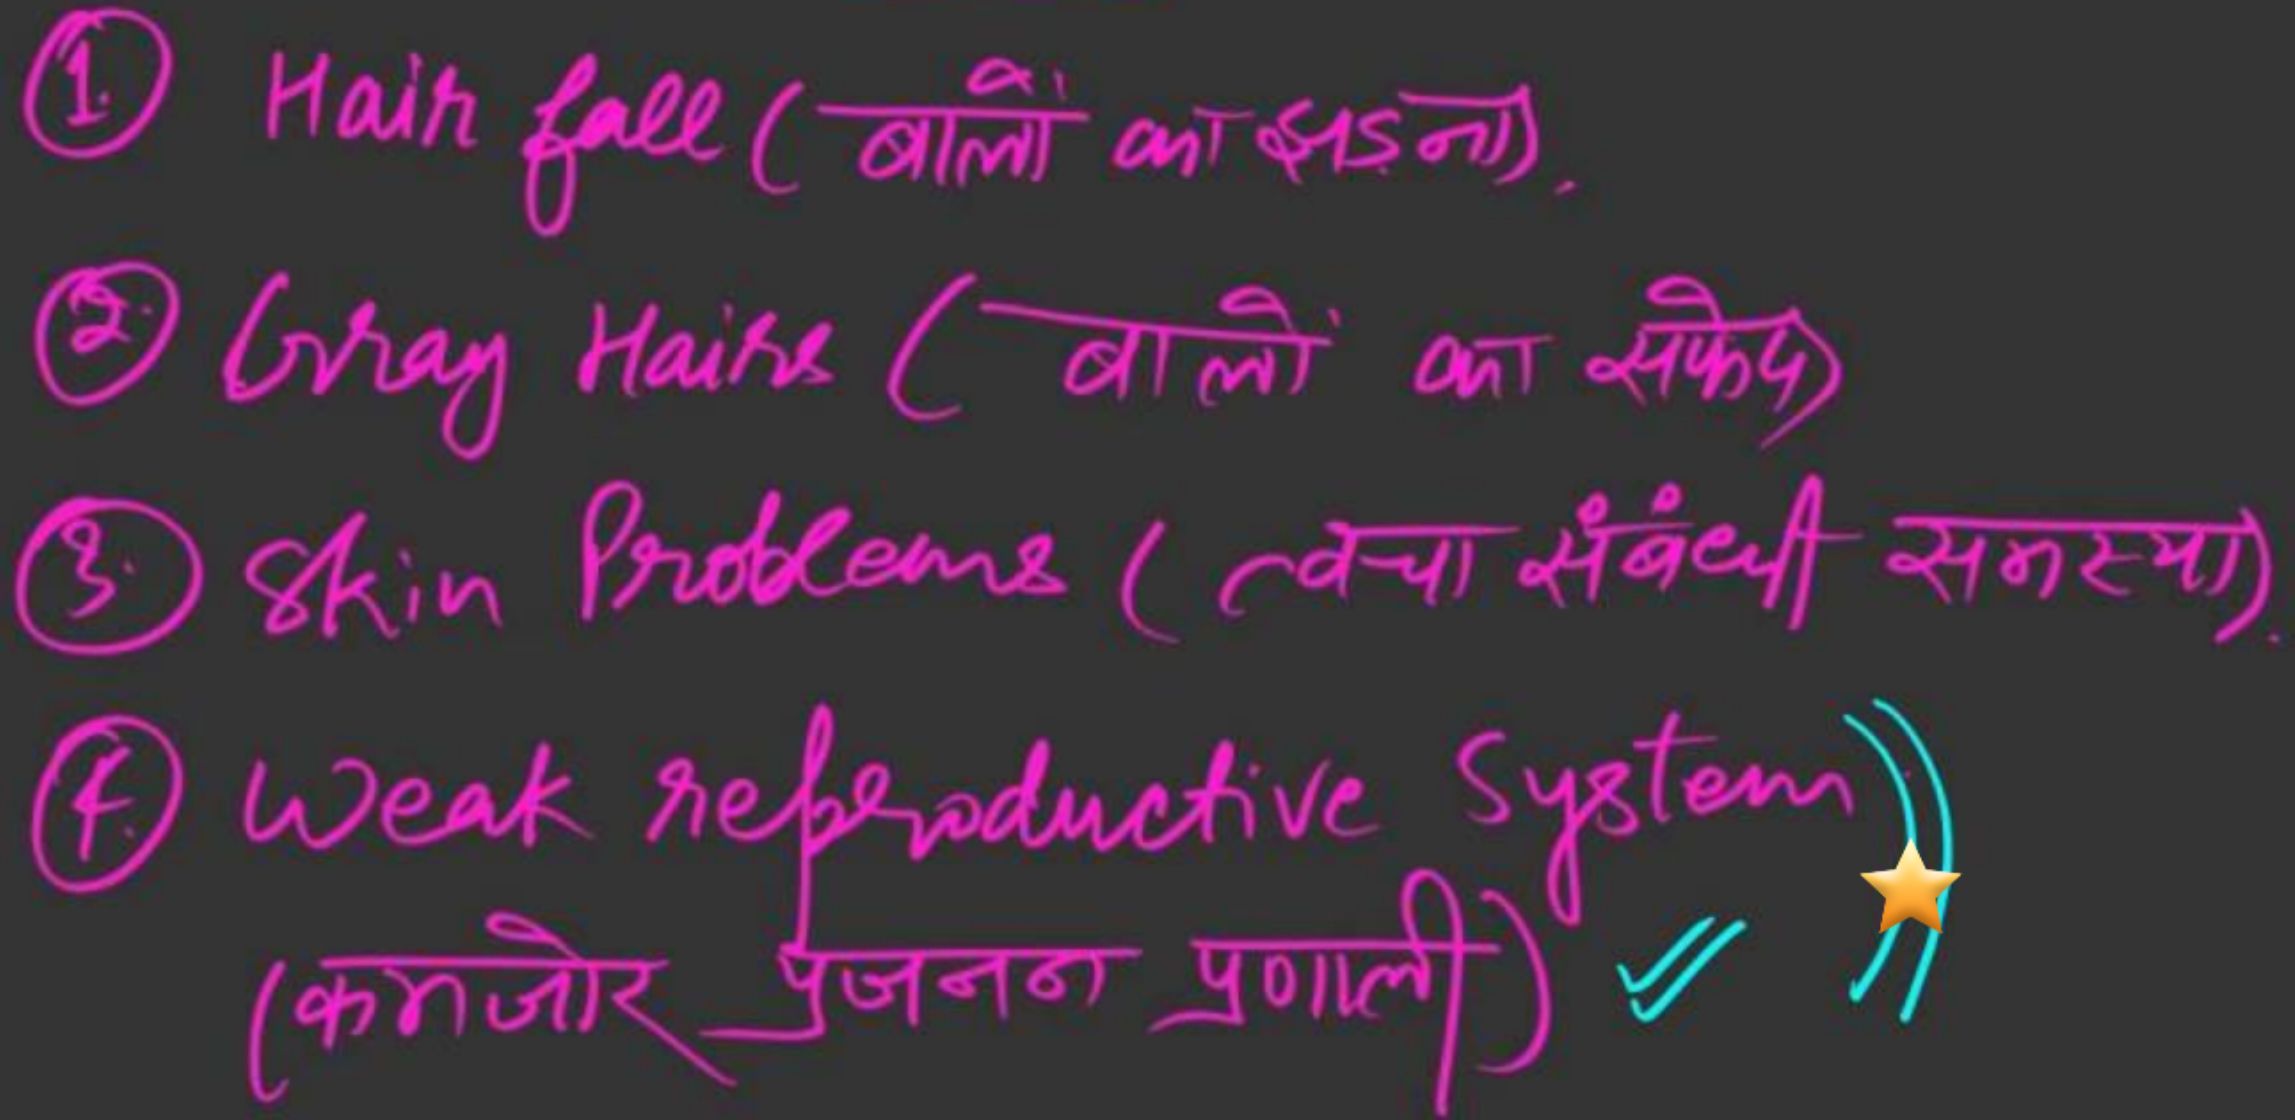 1. Hair fall (बालों का झड़ना).
2. Gray Hairs (बालों का सफेद)
3. Skin Problems (त्वचा संबंधी समस्या).
4. Weak reproductive System
(कमजोर प्रजनन प्रणाली)